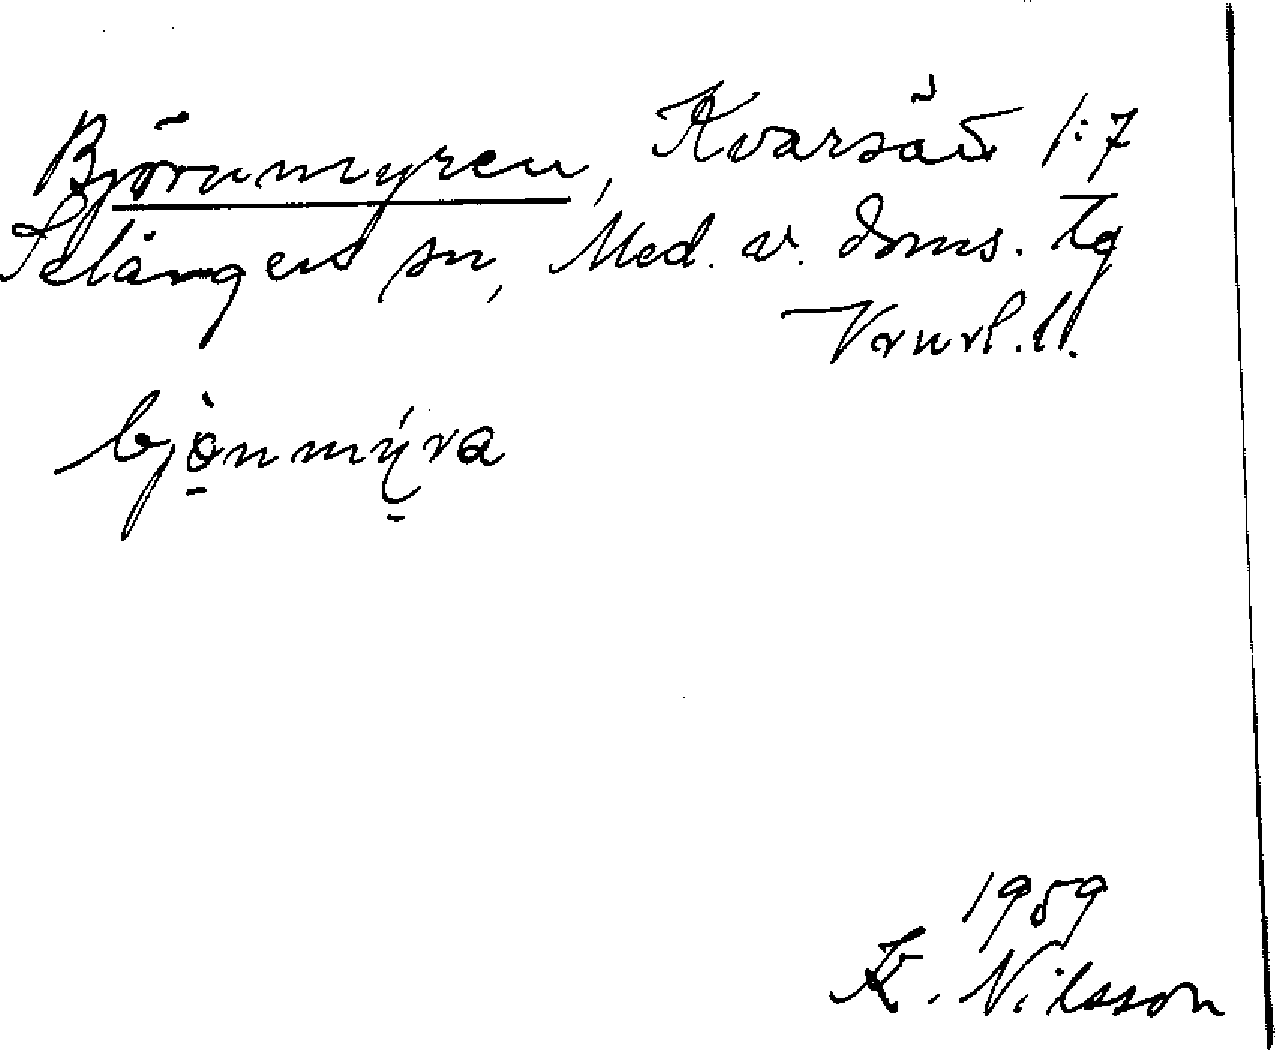 Björnmyren, Kvarsätt 1:7
Selångers sn, Med. v. doms. tg
Vnrl. ll.
bjònmýra
1959
K. Nilsson